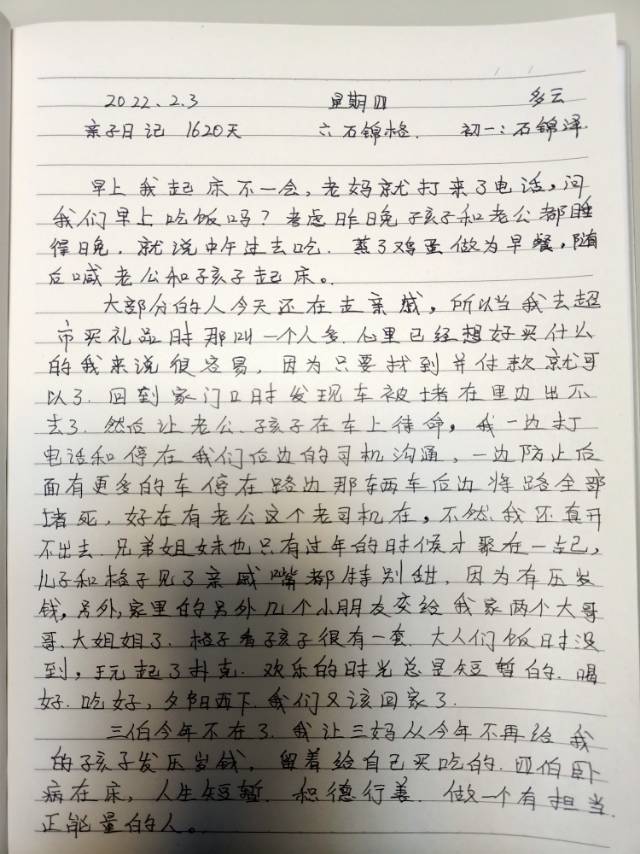 2022.2.3 星期四 多云
亲子日记 1620天 六石锦格. 初一:石锦泽.
早上我起床不一会,老妈就打来了电话,问
我们早上吃饭吗?考虑昨晚孩子和老公都睡
得晚.就说中午过去吃.蒸了鸡蛋做为早餐,随
后喊老公和孩子起床。
大部分的人今天还在走亲戚,所以当我去超
市买礼品时那叫一个人多.心里已经想好买什么
的我来说很容易,因为只要找到并付款就可
以了.回到家门口时发现车被堵在里边出不
去了.然后让老公.孩子在车上待命,我一边打
电话和停在我们后边的司机沟通,一边防止后
面有更多的车停在路边那辆车后边将路全部
堵死,好在有老公这个老司机在,不然我还真开
不出去.兄弟姐妹也只有过年的时候才聚在一起,
儿子和格子见了亲戚嘴都特别甜,因为有压岁
钱,另外,家里的另外几个小朋友交给我家两个大哥
哥.大姐姐了.格子看孩子很有一套.大人们饭时没
到,玩起了扑克.欢乐的时光总是短暂的.喝
好.吃好,夕阳西下.我们又该回家了.
三伯今年不在了.我让三妈从今年不再给我
的孩子发压岁钱,留着给自己买吃的.四伯卧
病在床,人生短暂.积德行善.做一个有担当.
正能量的人。